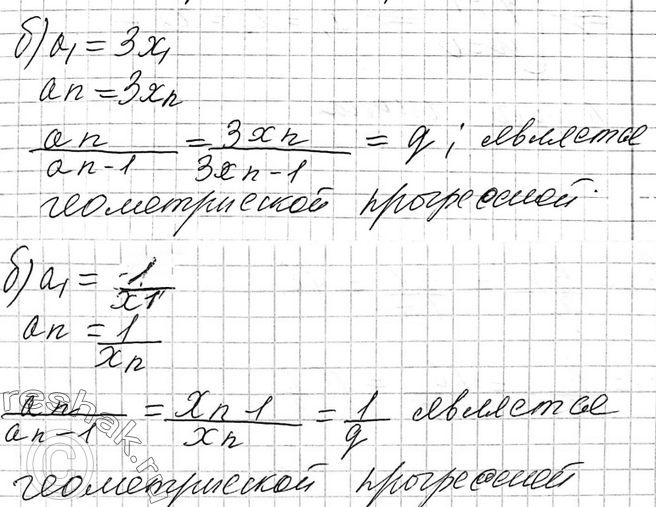 б) a₁ = 3x₁
an = 3xn
an / an-1 = 3xn / 3xn-1 = q; является
геометриской прогрессией.
б) a₁ = 1 / x1
an = 1 / xn
an / an-1 = xn-1 / xn = 1 / q является
геометриской прогрессией
reshak.ru